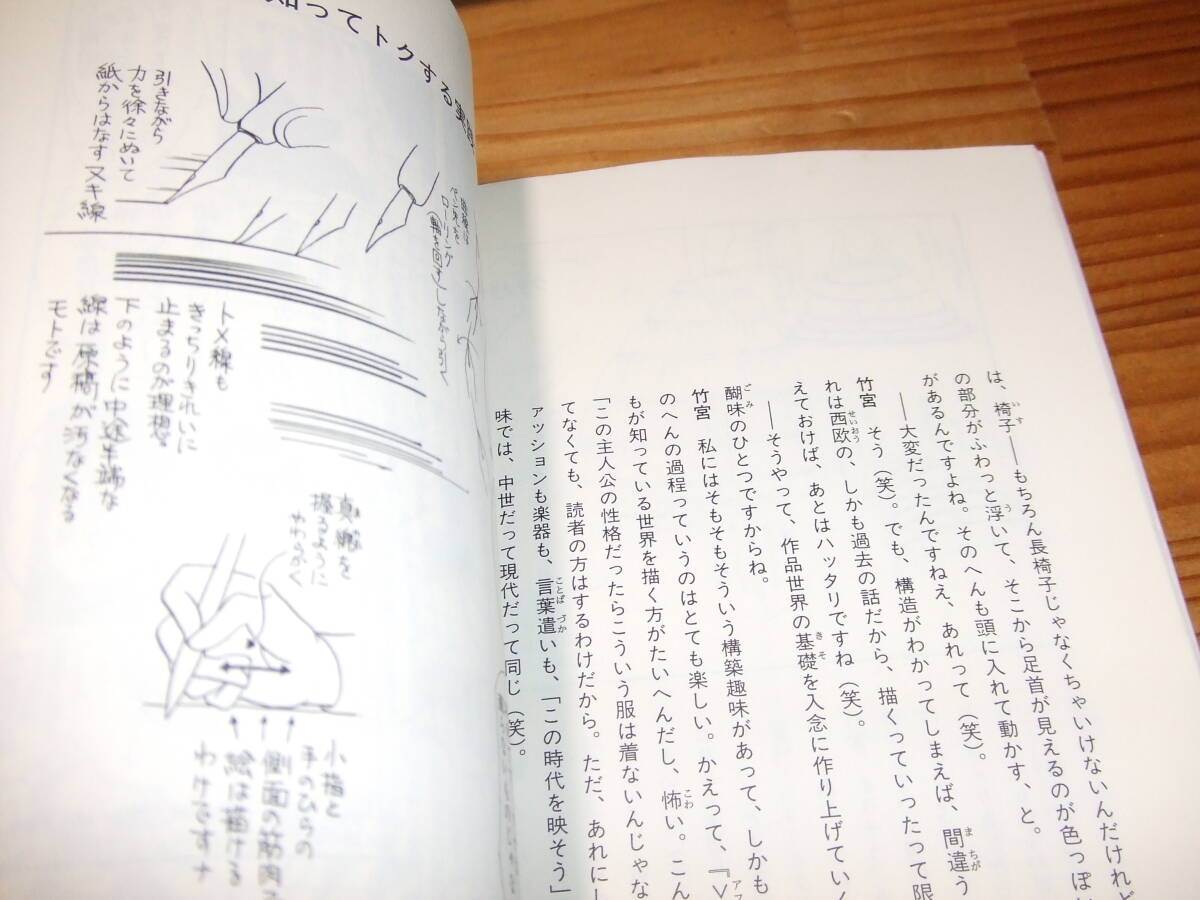 知ってトクする実
引きながら
力を徐々にぬいて
紙からはなすヌキ線
ペン先を
ローリング
(軸を回す)しながら引く
トメ線も
きっちりきれいに
止まるのが理想
下のように中途半端な
線は原稿が汚なくなる
モトです
握るように
やわらかく
小指と
手のひらの
側面の筋肉
絵は描ける
わけですナ
は、椅子――もちろん長椅子じゃなくちゃいけないんだけれど
の部分がふわっと浮いて、そこから足首が見えるのが色っぽ
があるんですよね。そのへんも頭に入れて動かす、と。
――大変だったんですねえ、あれって(笑)。
竹宮 そう(笑)。でも、構造がわかってしまえば、間違う
れは西欧の、しかも過去の話だから、描くっていったって限
えておけば、あとはハッタリですね(笑)。
――そうやって、作品世界の基礎を入念に作り上げていく
醐味のひとつですからね。
竹宮 私にはそもそもそういう構築趣味があって、しかも
のへんの過程っていうのはとても楽しい。かえって、『
もが知っている世界を描く方がたいへんだし、怖い。こん
「この主人公の性格だったらこういう服は着ないんじゃな
てなくても、読者の方はするわけだから。ただ、あれにし
アッションも楽器も、言葉遣いも、「この時代を映そう」
味では、中世だって現代だって同じ(笑)。